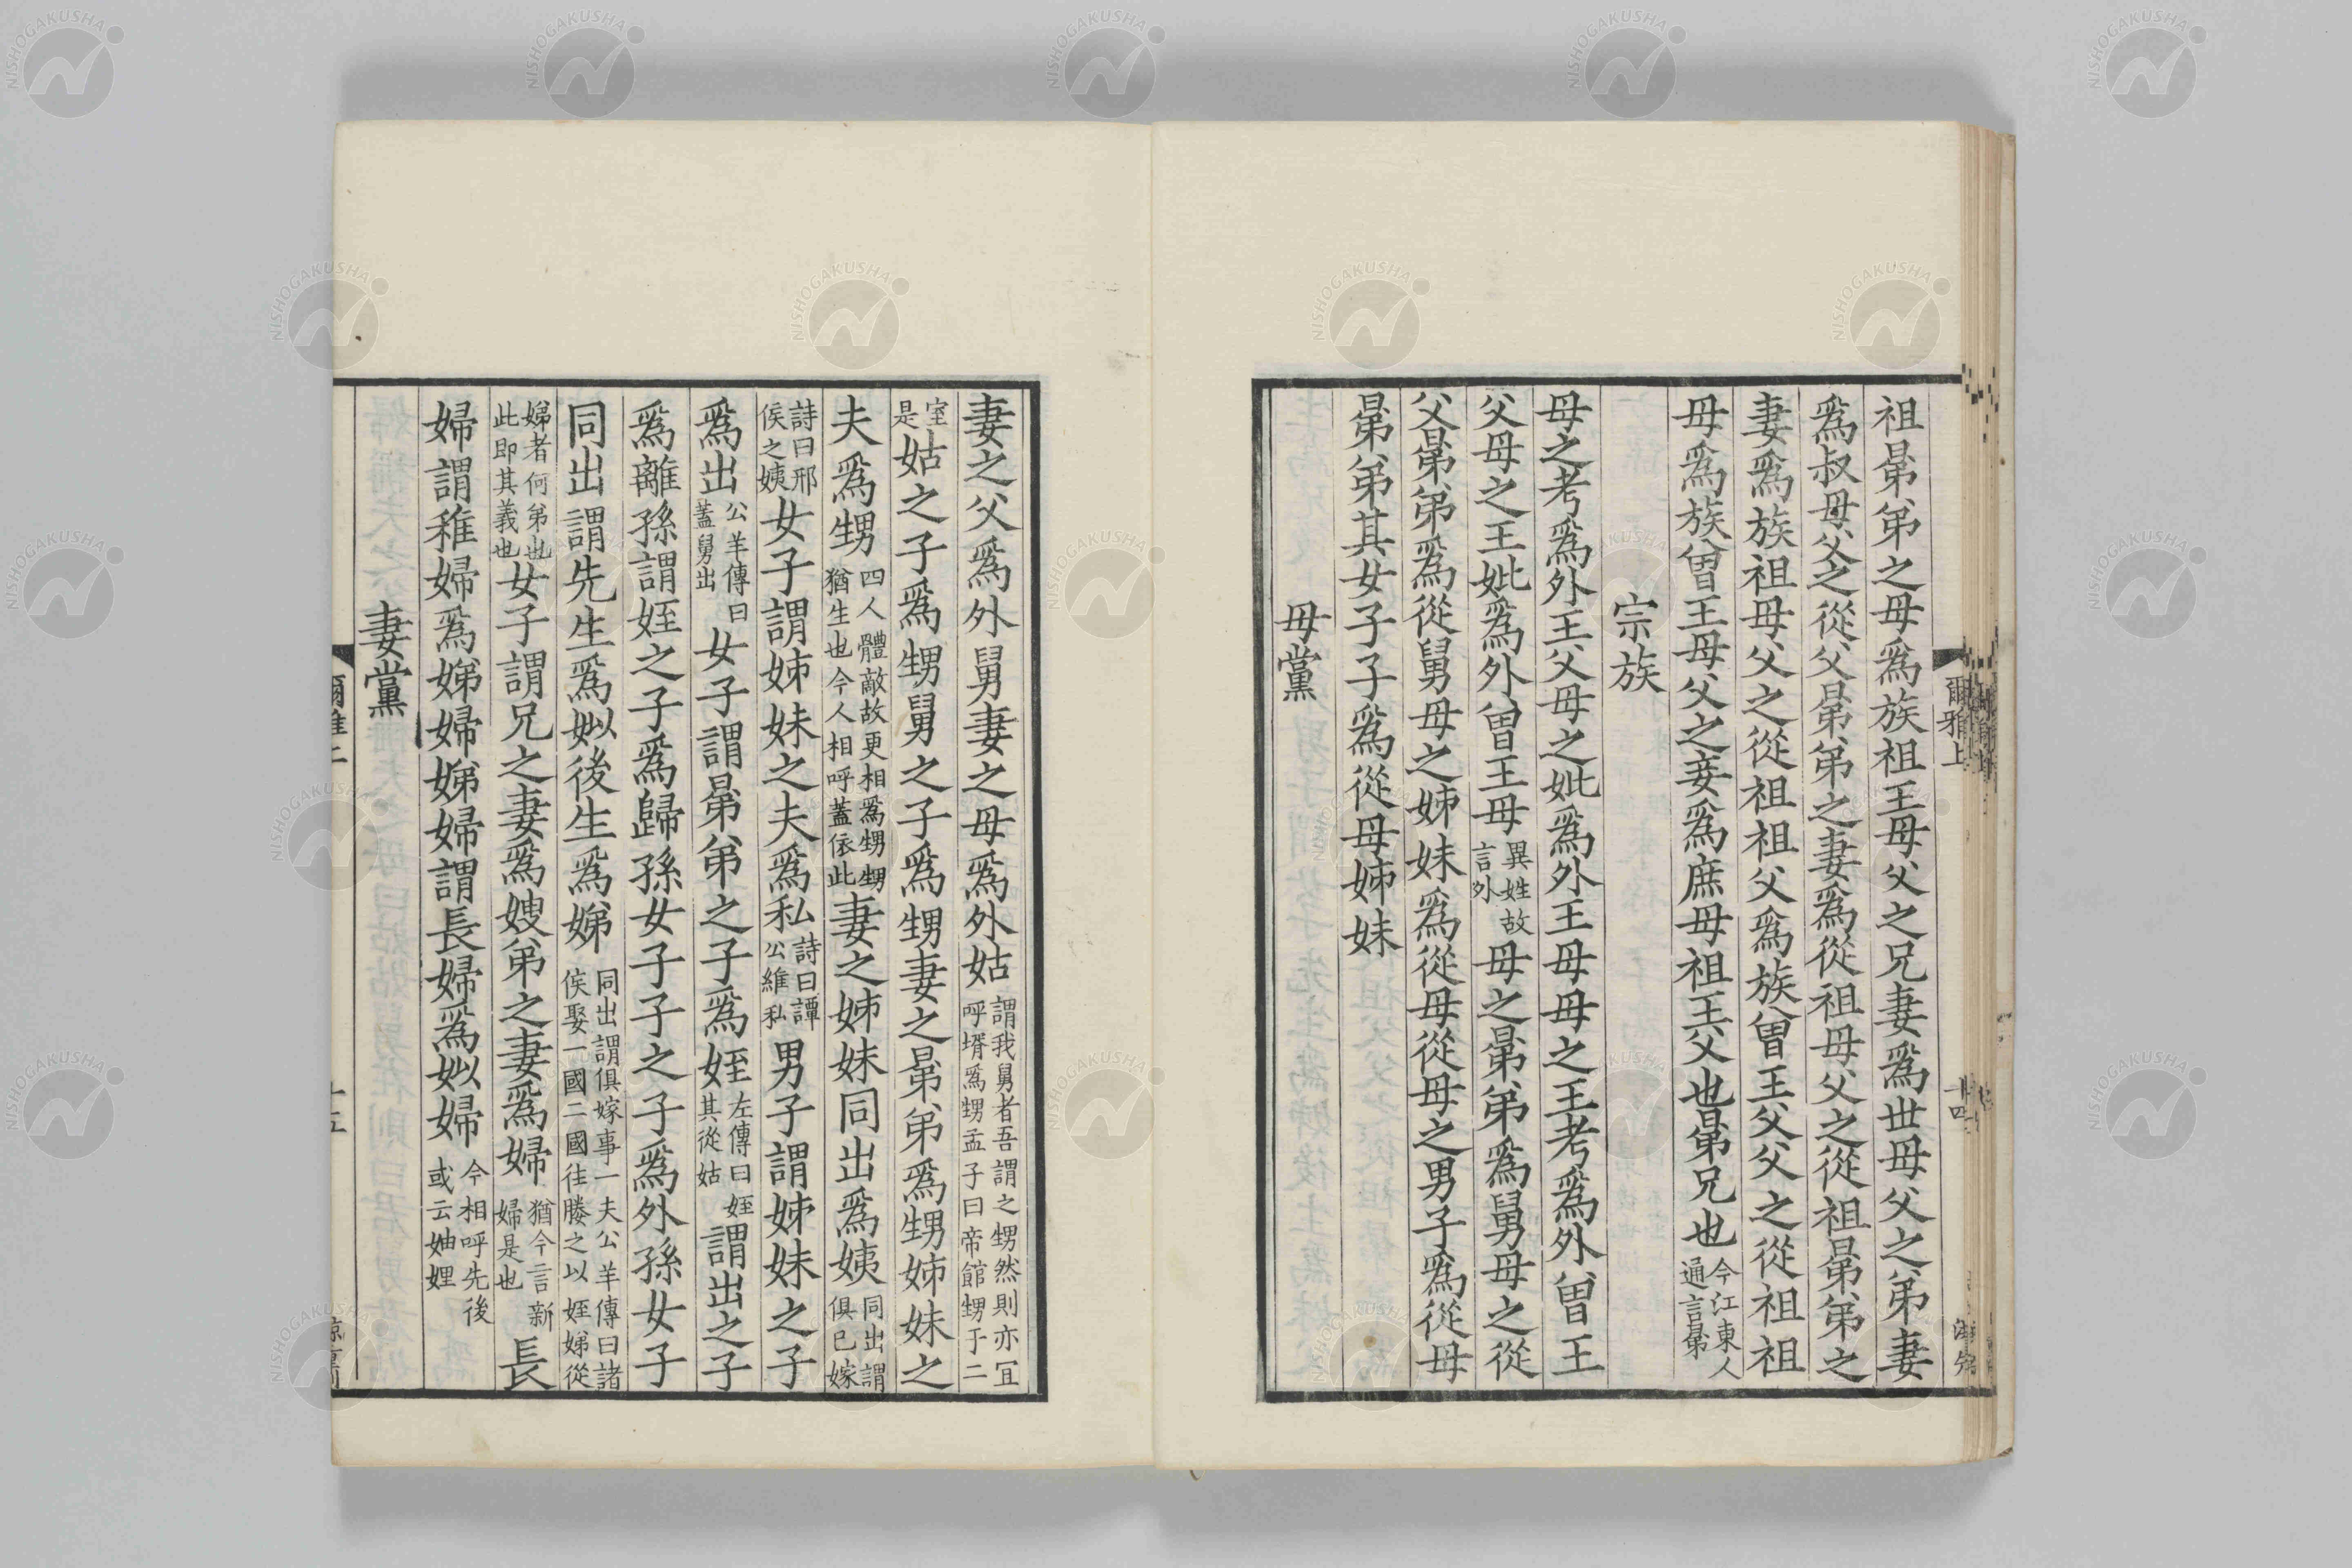 祖晜弟之母爲族祖王母父之兄妻爲世母父之弟妻
爲叔母父之從父晜弟之妻爲從祖母父之從祖晜弟之
妻爲族祖母父之從祖祖父爲族曾王父父之從祖祖
母爲族曾王母父之妾爲庶母祖王父也晜兄也今江東人通言晜
宗族
母之考爲外王父母之妣爲外王母母之王考爲外曾王
父母之王妣爲外曾王母異姓故言外母之晜弟爲舅母之從
父晜弟爲從舅母之姊妹爲從母從母之男子爲從母
晜弟其女子子爲從母姊妹
母黨
爾雅上
十四
妻之父爲外舅妻之母爲外姑謂我舅者吾謂之甥然則亦宜呼壻爲甥孟子曰帝館甥于二
室是姑之子爲甥舅之子爲甥妻之晜弟爲甥姊妹之
夫爲甥四人體敵故更相爲甥甥猶生也今人相呼蓋依此妻之姊妹同出爲姨同出謂俱已嫁
詩曰邢侯之姨女子謂姊妹之夫爲私詩曰譚公維私男子謂姊妹之子
爲出公羊傳曰蓋舅出女子謂晜弟之子爲姪左傳曰姪其從姑謂出之子
爲離孫謂姪之子爲歸孫女子子之子爲外孫女子
同出謂先生爲姒後生爲娣同出謂俱嫁事一夫公羊傳曰諸侯娶一國二國往媵之以姪娣從
娣者何弟也此即其義也女子謂兄之妻爲嫂弟之妻爲婦猶今言新婦是也長
婦謂稚婦爲娣婦娣婦謂長婦爲姒婦今相呼先後或云妯娌
妻黨